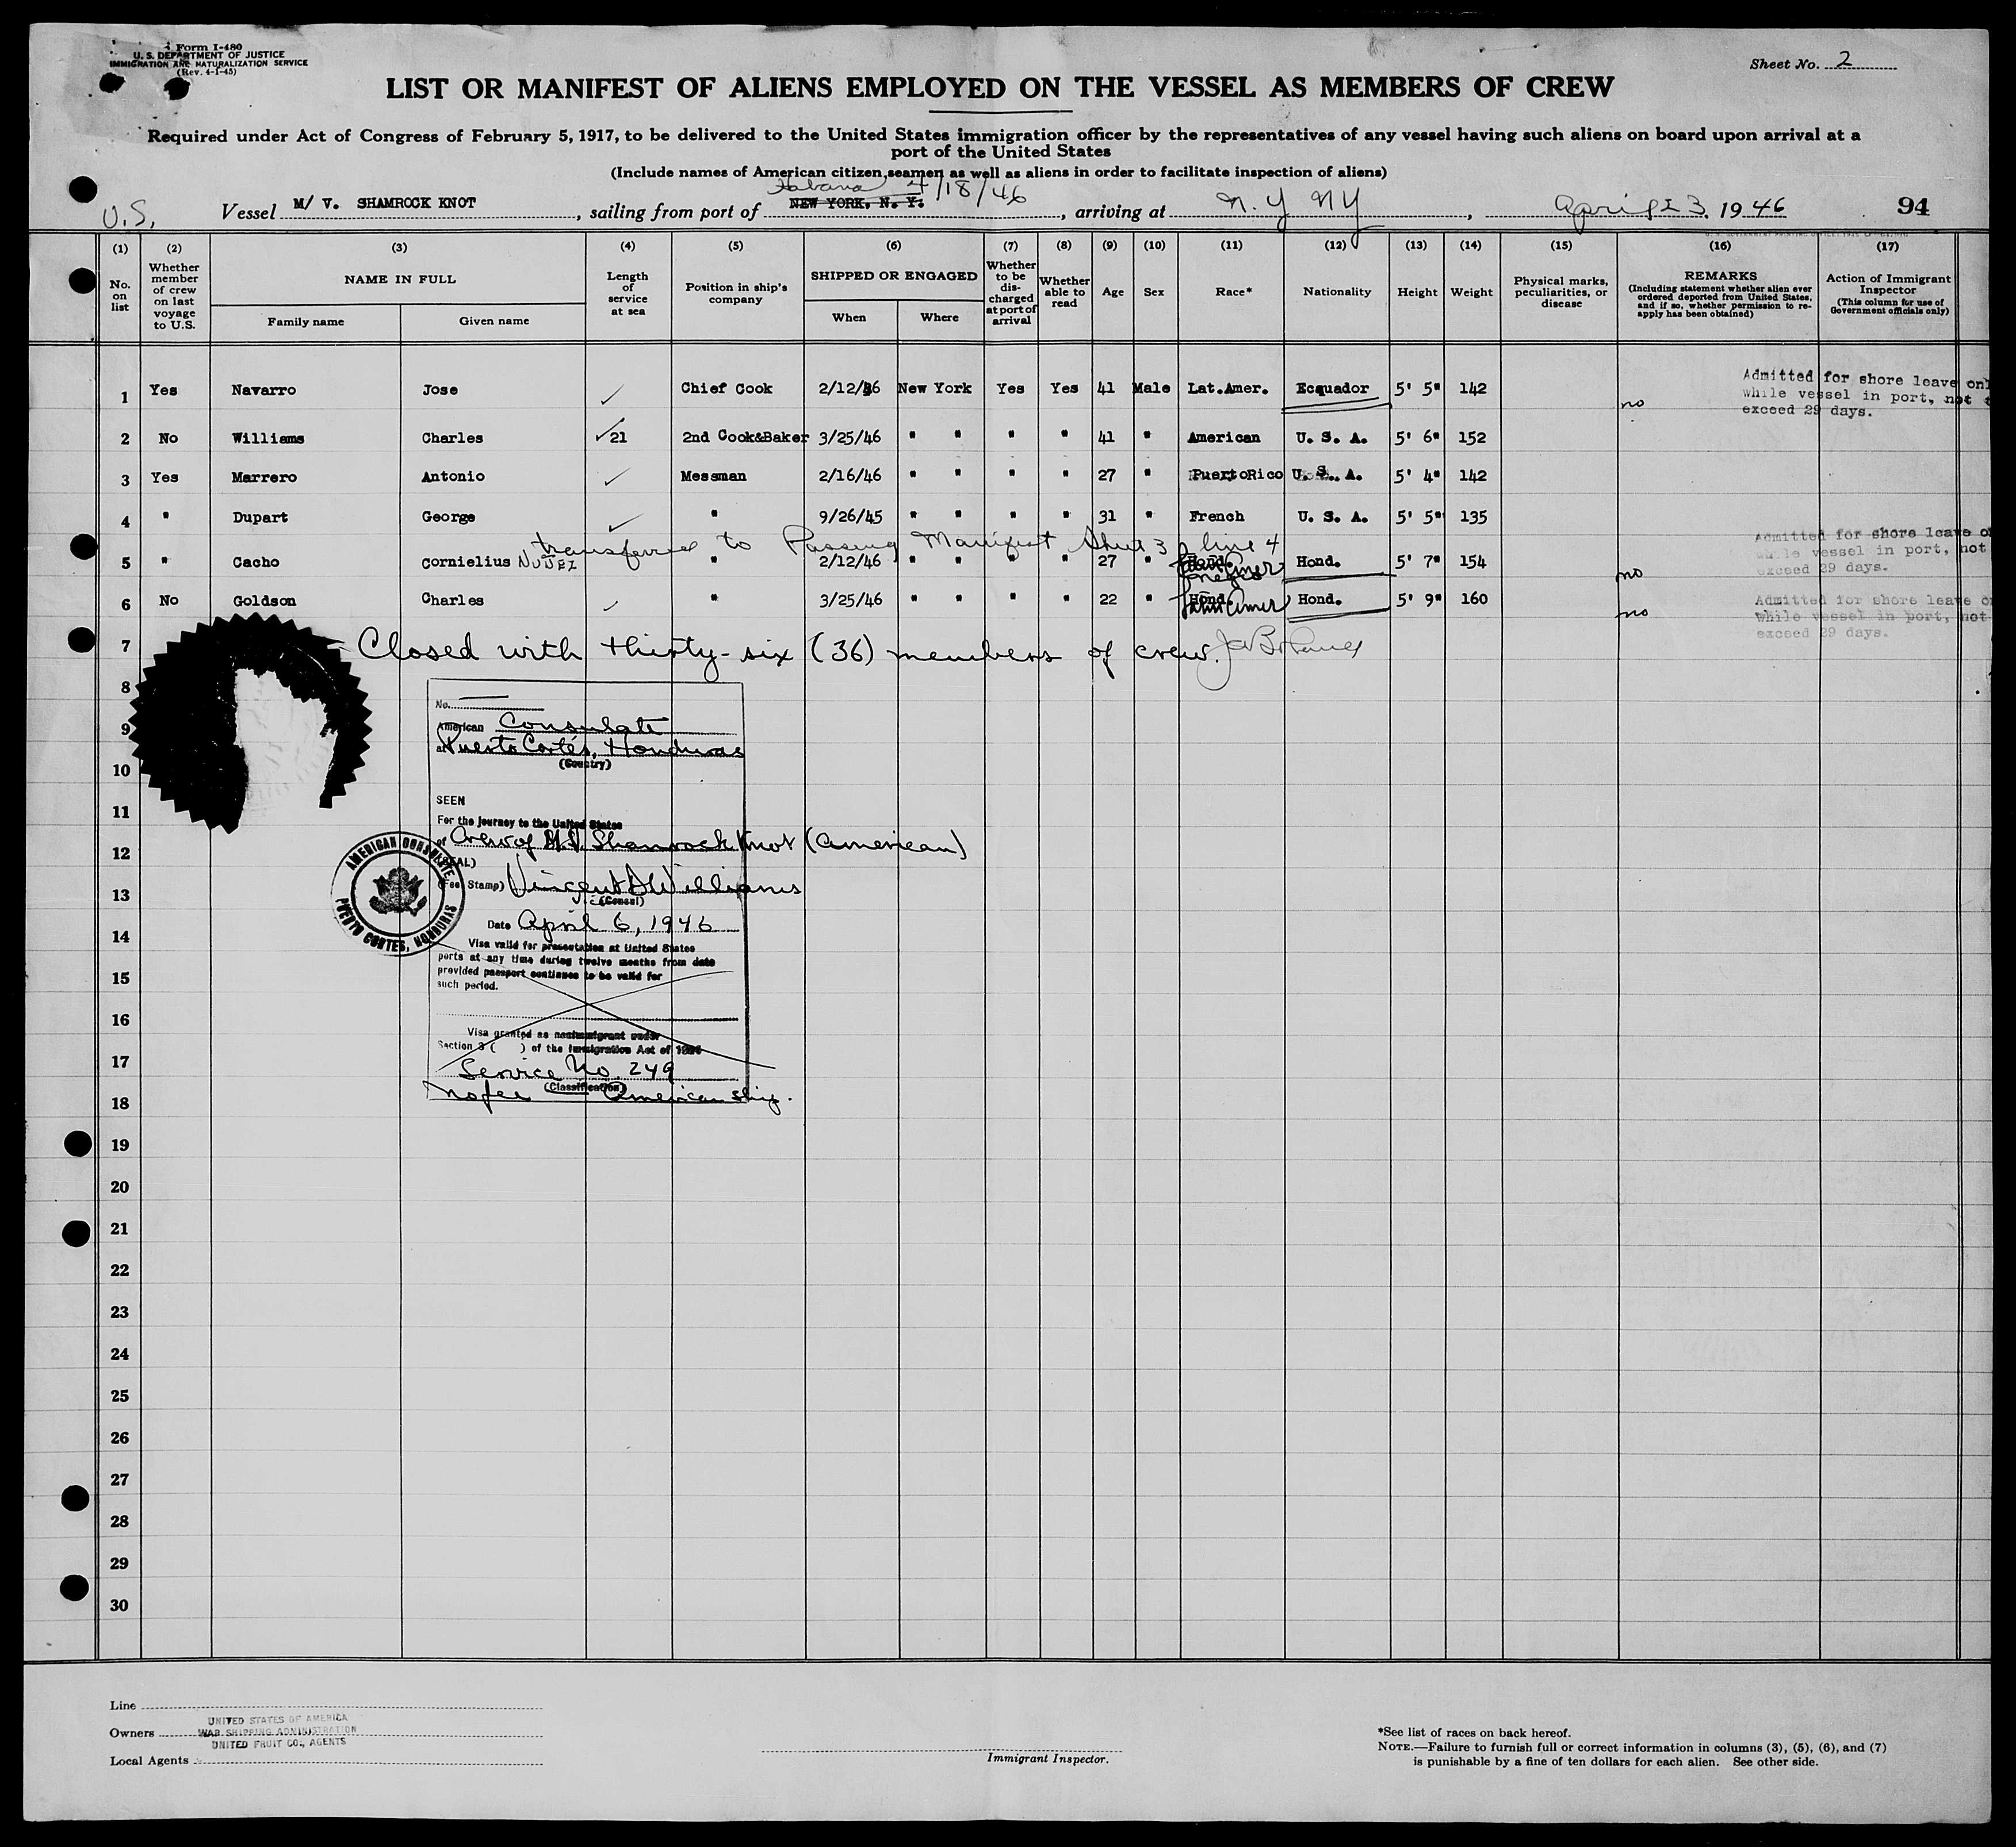 Form I-480
U. S. DEPARTMENT OF JUSTICE
IMMIGRATION AND NATURALIZATION SERVICE
(Rev. 4-1-45)
Sheet No. 2
LIST OR MANIFEST OF ALIENS EMPLOYED ON THE VESSEL AS MEMBERS OF CREW
Required under Act of Congress of February 5, 1917, to be delivered to the United States immigration officer by the representatives of any vessel having such aliens on board upon arrival at a
port of the United States
(Include names of American citizen seamen as well as aliens in order to facilitate inspection of aliens)
Habana 4/18/46
U.S. Vessel M/ V. SHAMROCK KNOT, sailing from port of NEW YORK, N. Y., arriving at N.Y NY, April 23, 1946 94
(1) (2) (3) (4) (5) (6) (7) (8) (9) (10) (11) (12) (13) (14) (15) (16) (17)
No. on list
Whether member of crew on last voyage to U.S.
NAME IN FULL
Family name
Given name
Length of service at sea
Position in ship's company
SHIPPED OR ENGAGED
When
Where
Whether to be discharged at port of arrival
Whether able to read
Age
Sex
Race*
Nationality
Height
Weight
Physical marks, peculiarities, or disease
REMARKS
(Including statement whether alien ever ordered deported from United States, and if so, whether permission to reapply has been obtained)
Action of Immigrant Inspector
(This column for use of Government officials only)
1 Yes Navarro Jose Chief Cook 2/12/46 New York Yes Yes 41 Male Lat.Amer. Ecquador 5' 5" 142 no
Admitted for shore leave onl
while vessel in port, not t
exceed 29 days.
2 No Williams Charles 21 2nd Cook&Baker 3/25/46 " " " " 41 " American U. S. A. 5' 6" 152
3 Yes Marrero Antonio Messman 2/16/46 " " " " 27 " PuertoRico U. S. A. 5' 4" 142
4 " Dupart George " 9/26/45 " " " " 31 " French U. S. A. 5' 5" 135
transferred to Passing Manifest Sheet 3 line 4
5 " Cacho cornielius NUÑEZ " 2/12/46 " " " " 27 " Hond. Hond. 5' 7" 154 no
Admitted for shore leave o
while vessel in port, not
exceed 29 days.
6 No Goldson Charles " 3/25/46 " " " " 22 " Hond. Latin Amer Hond. 5' 9" 160 no
Admitted for shore leave o
while vessel in port, not
exceed 29 days.
7 Closed with thirty-six (36) members of crew.
8
No.
9
American Consulate
at Puerto Cortés, Honduras
(Country)
10
SEEN
11
For the journey to the United States
of Crew of M.V. Shamrock Knot (American)
12
(SEAL)
(Fee Stamp) Vincent D Williams
(Consul)
13
AMERICAN CONSULATE
PUERTO CORTES, HONDURAS
Date April 6, 1946
14
Visa valid for presentation at United States
ports at any time during twelve months from date
provided passport continues to be valid for
such period.
15
16
Visa granted as nonimmigrant under
Section 3 ( ) of the Immigration Act of 1924
17
Service No. 249
(Classification)
No fee American ship.
18
19
20
21
22
23
24
25
26
27
28
29
30
Line
Owners UNITED STATES OF AMERICA
WAR SHIPPING ADMINISTRATION
Local Agents UNITED FRUIT CO., AGENTS
Immigrant Inspector.
*See list of races on back hereof.
NOTE.—Failure to furnish full or correct information in columns (3), (5), (6), and (7)
is punishable by a fine of ten dollars for each alien. See other side.